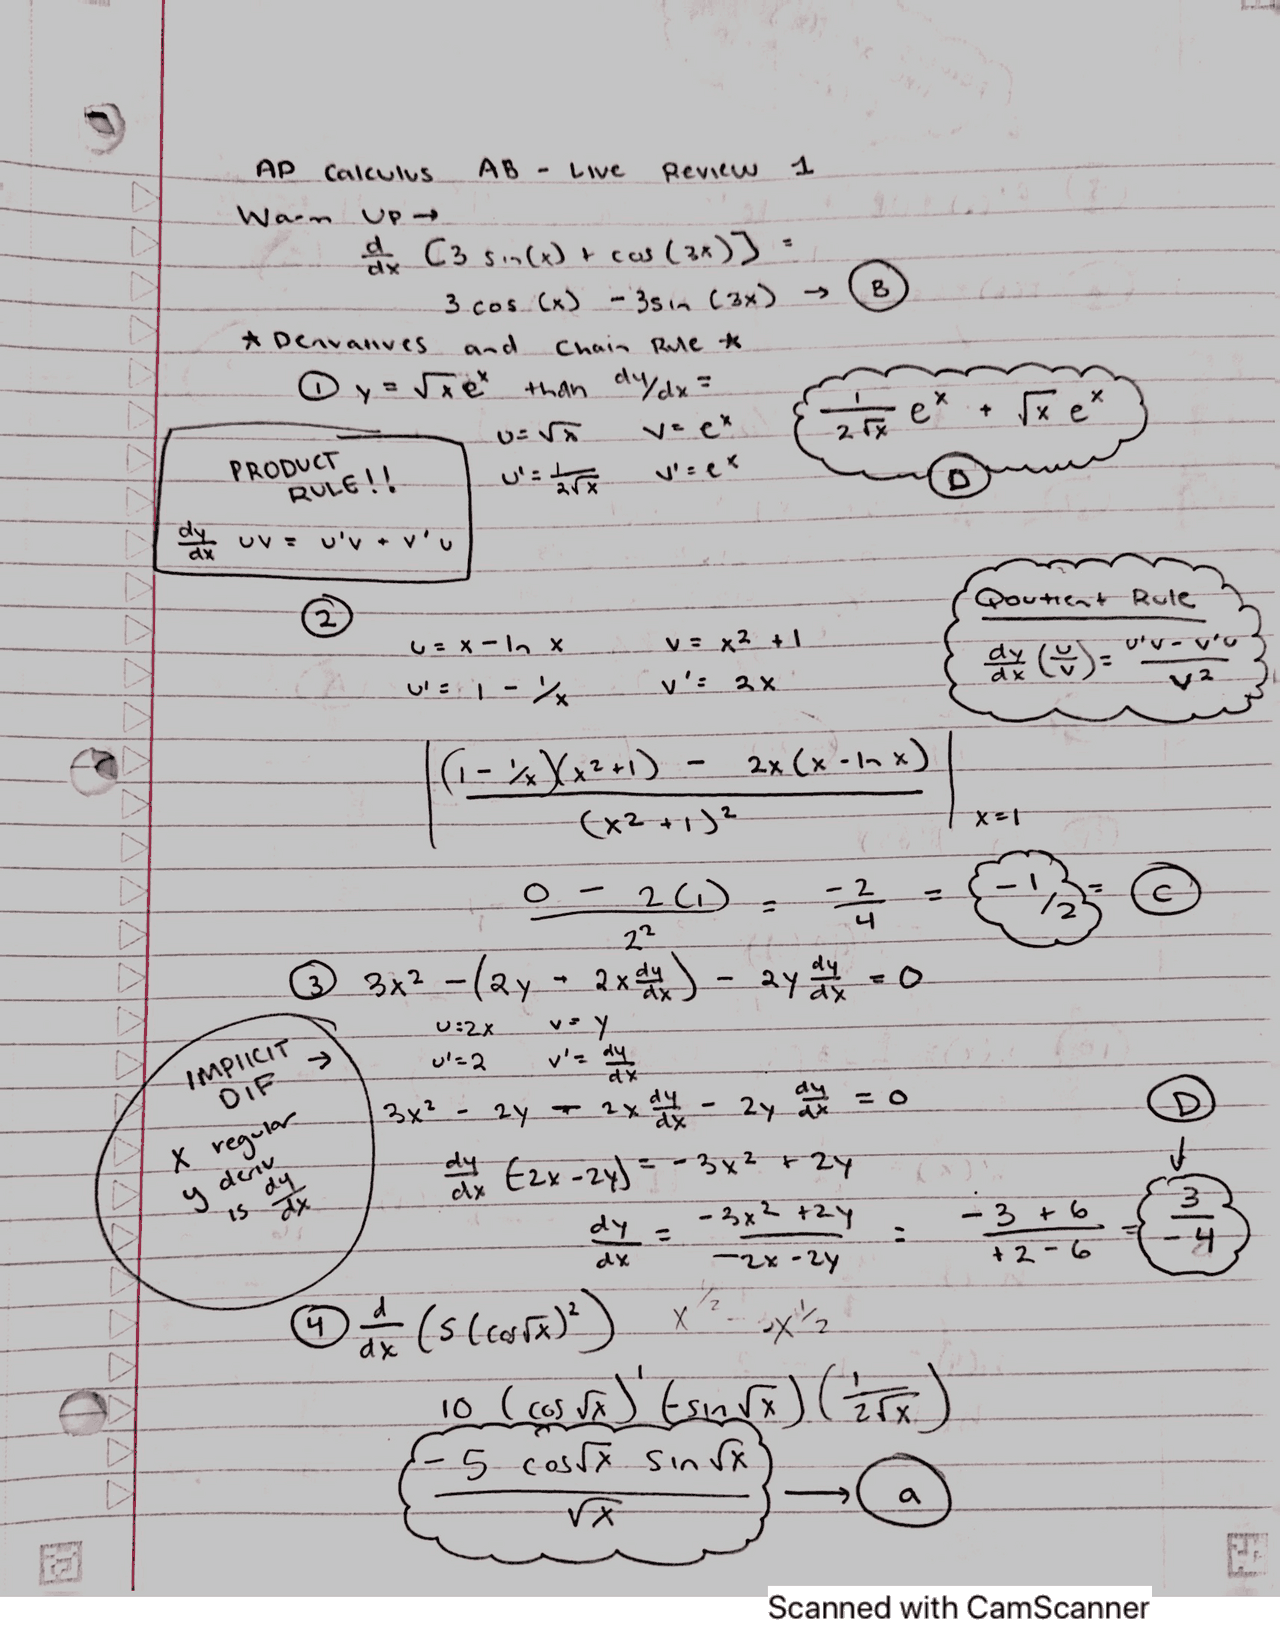 AP Calculus AB - Live Review 1
Warm Up →
d/dx [3 sin(x) + cos(3x)] =
3 cos(x) - 3sin(3x) → B
* Derivatives and Chain Rule *
① y = √x e^x than dy/dx =
1/(2√x) e^x + √x e^x
D
u = √x v = e^x
u' = 1/(2√x) v' = e^x
PRODUCT
RULE!!
dy/dx uv = u'v + v'u
②
u = x - ln x v = x² + 1
u' = 1 - 1/x v' = 2x
Qoutient Rule
dy/dx (u/v) = (u'v - v'u)/v²
|((1 - 1/x)(x²+1) - 2x(x - ln x))/(x²+1)²| x=1
(0 - 2(1))/2² = -2/4 = -1/2 = C
③ 3x² - (2y + 2x dy/dx) - 2y dy/dx = 0
u=2x v= y
u'=2 v'= dy/dx
IMPLICIT →
DIF
x regular
y deriv
is dy/dx
3x² - 2y - 2x dy/dx - 2y dy/dx = 0
D
↓
dy/dx (-2x - 2y) = -3x² + 2y
dy/dx = (-3x² + 2y)/(-2x - 2y) = (-3 + 6)/(+2 - 6) = 3/-4
④ d/dx (5(cos√x)²) x^1/2 x^1/2
10 (cos√x)^1 (-sin√x) (1/(2√x))
(-5 cos√x sin√x)/√x → a
Scanned with CamScanner